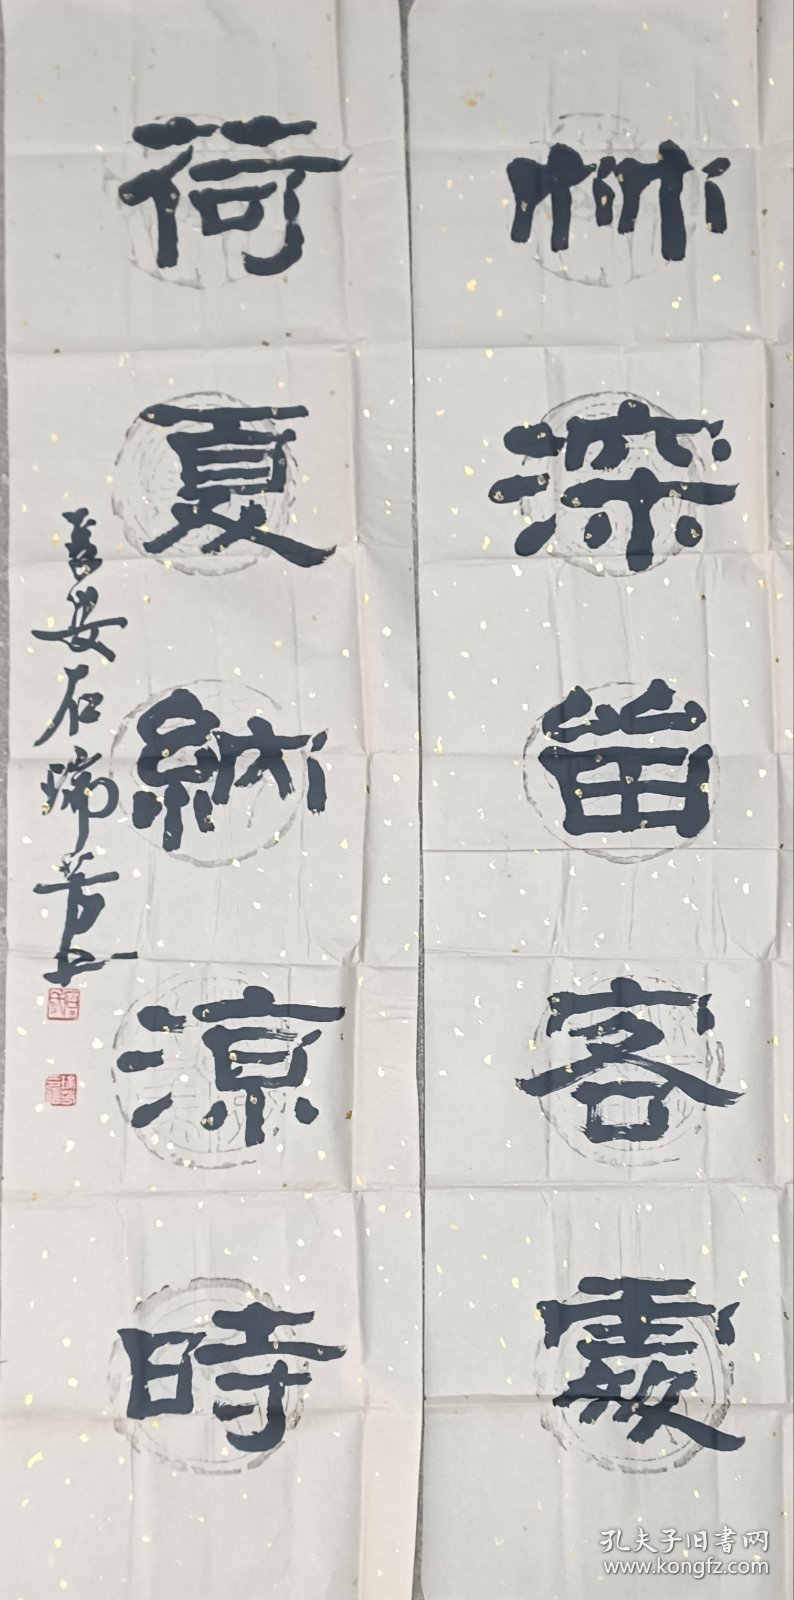 竹深留客處
荷夏納涼時
長安石瑞芳
孔夫子旧書网
www.kongfz.com